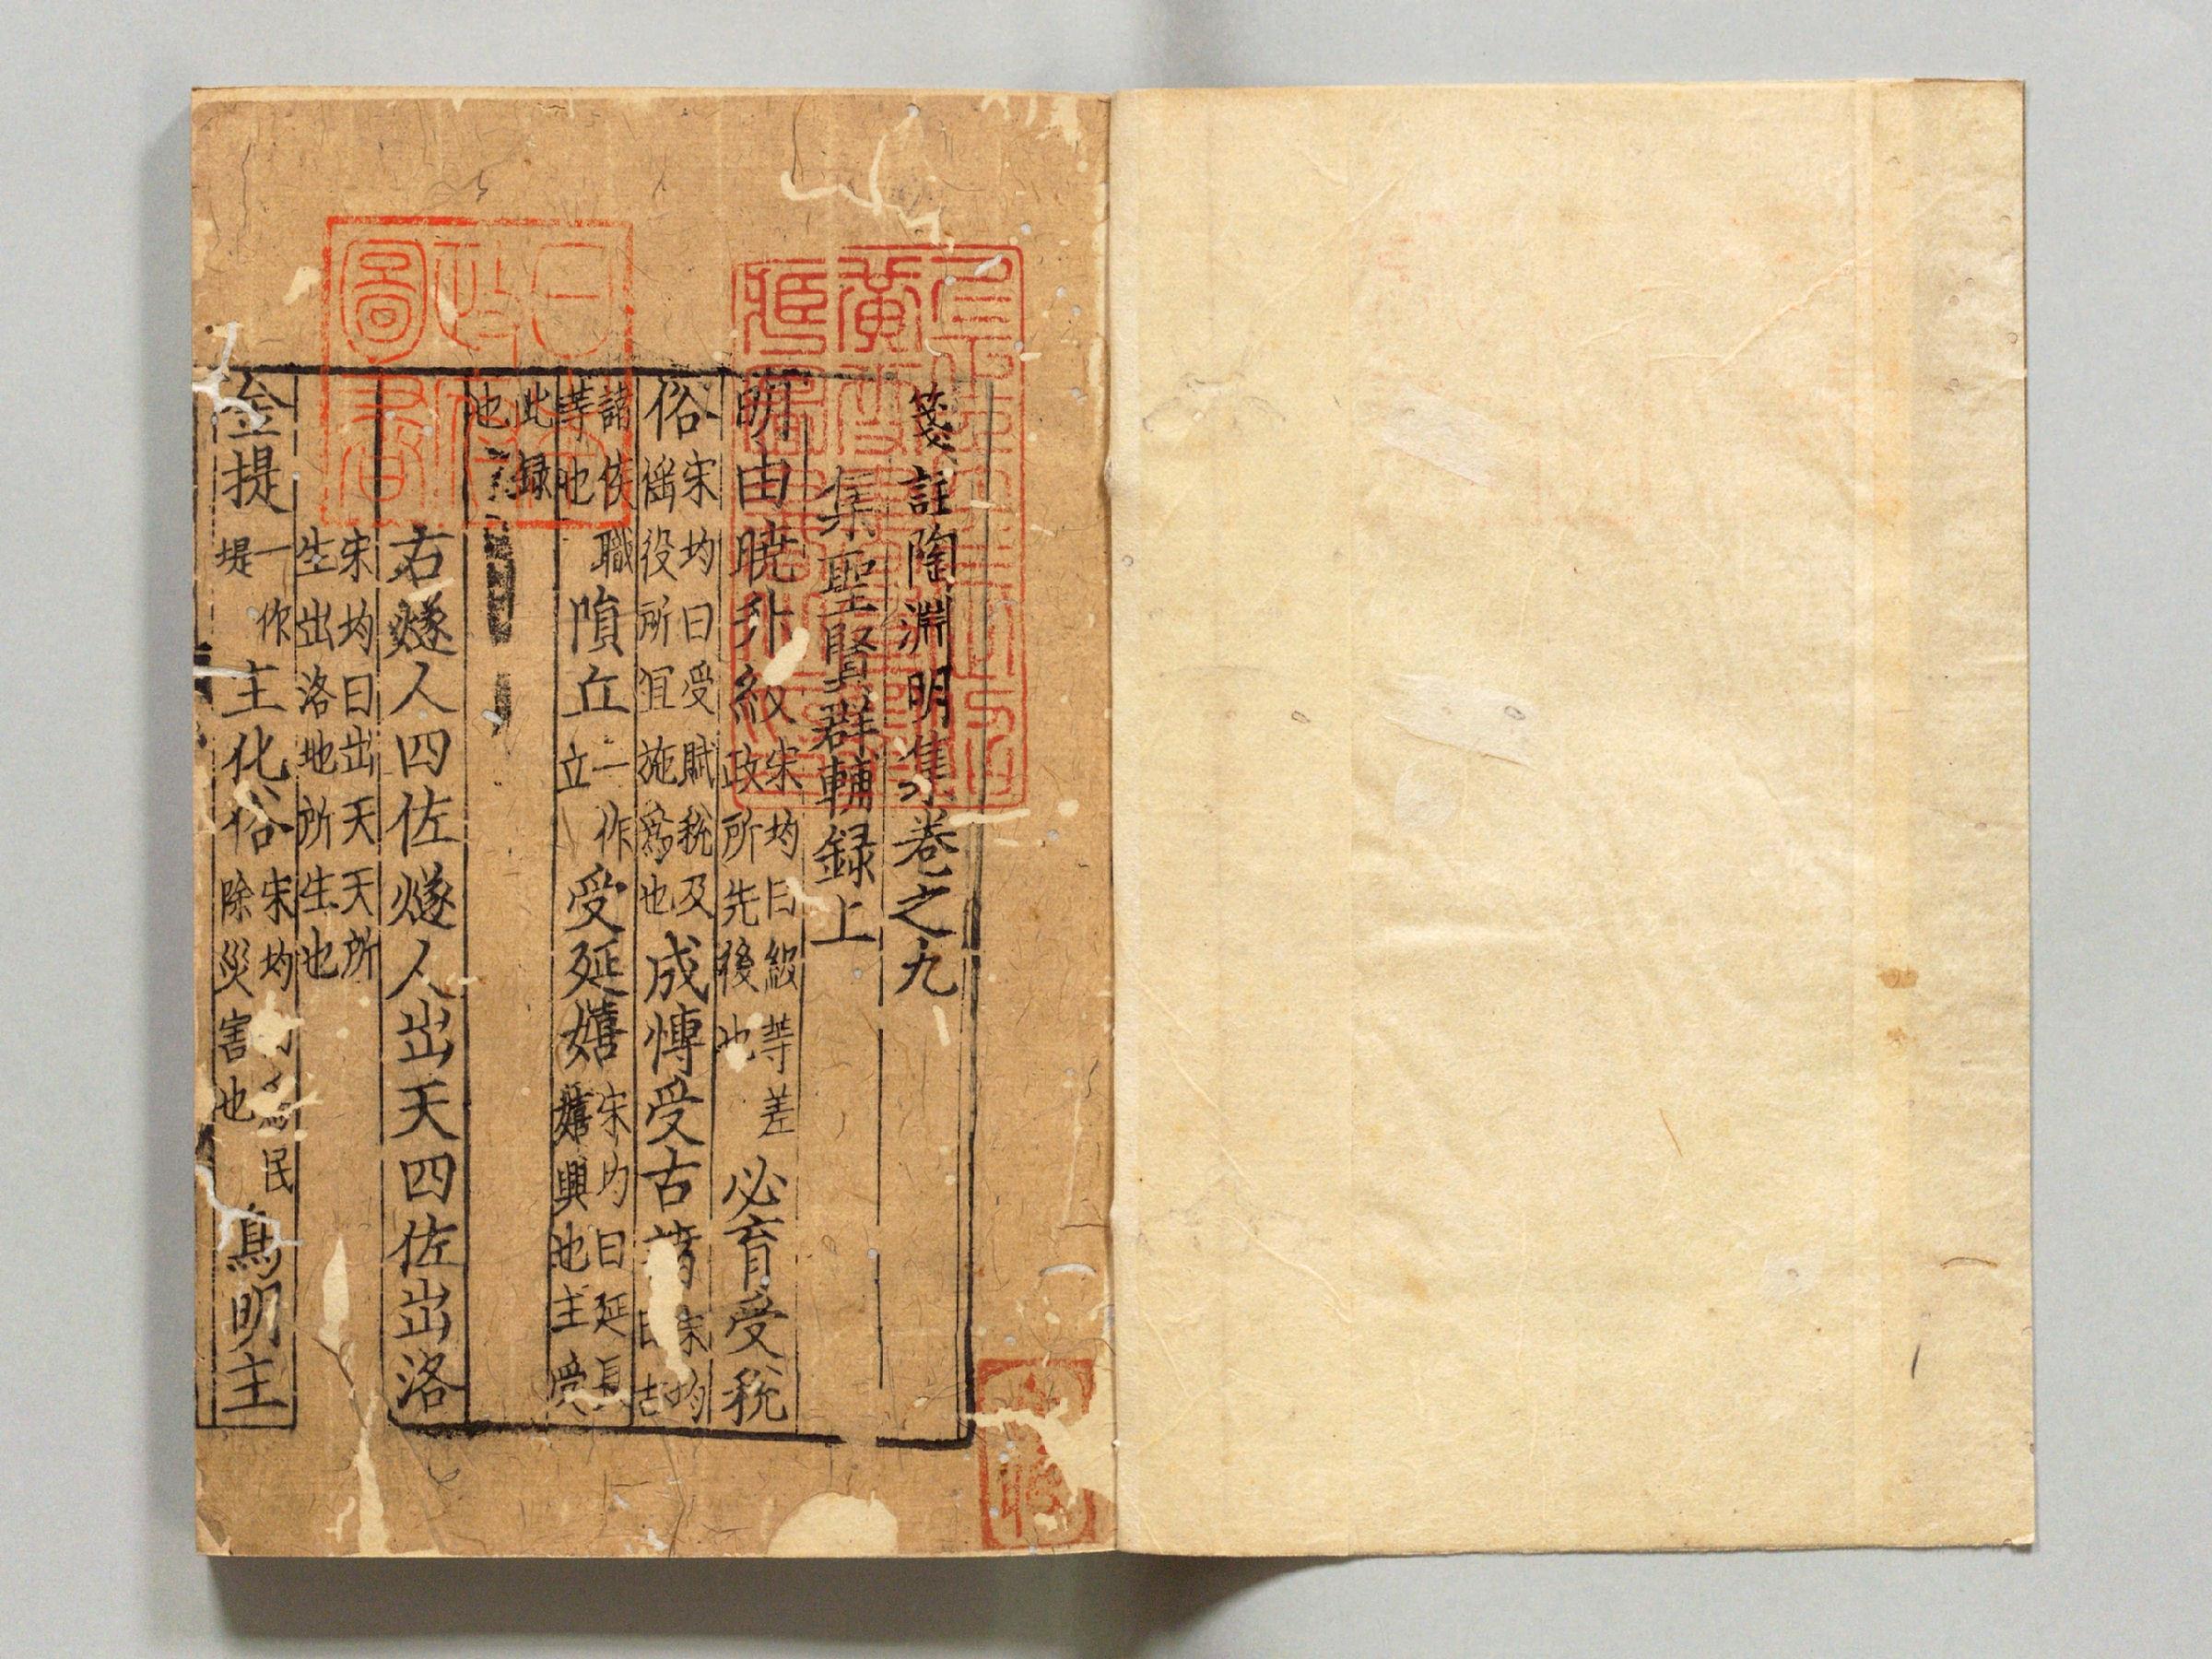 箋註陶淵明集卷之九
集聖賢群輔録上
明由曉升級宋均曰級等差政所先後也必育受税
俗宋均曰受賦税及徭役所宜施爲也成愽受古諸宋均曰古
諸侯職等也隕丘一作立受延嬉宋均曰延長嬉興也主受
此録也
右燧人四佐燧人出天四佐出洛
宋均曰出天天所生出洛地所生也
金提一作堤主化俗宋均曰爲民除災害也鳥明主